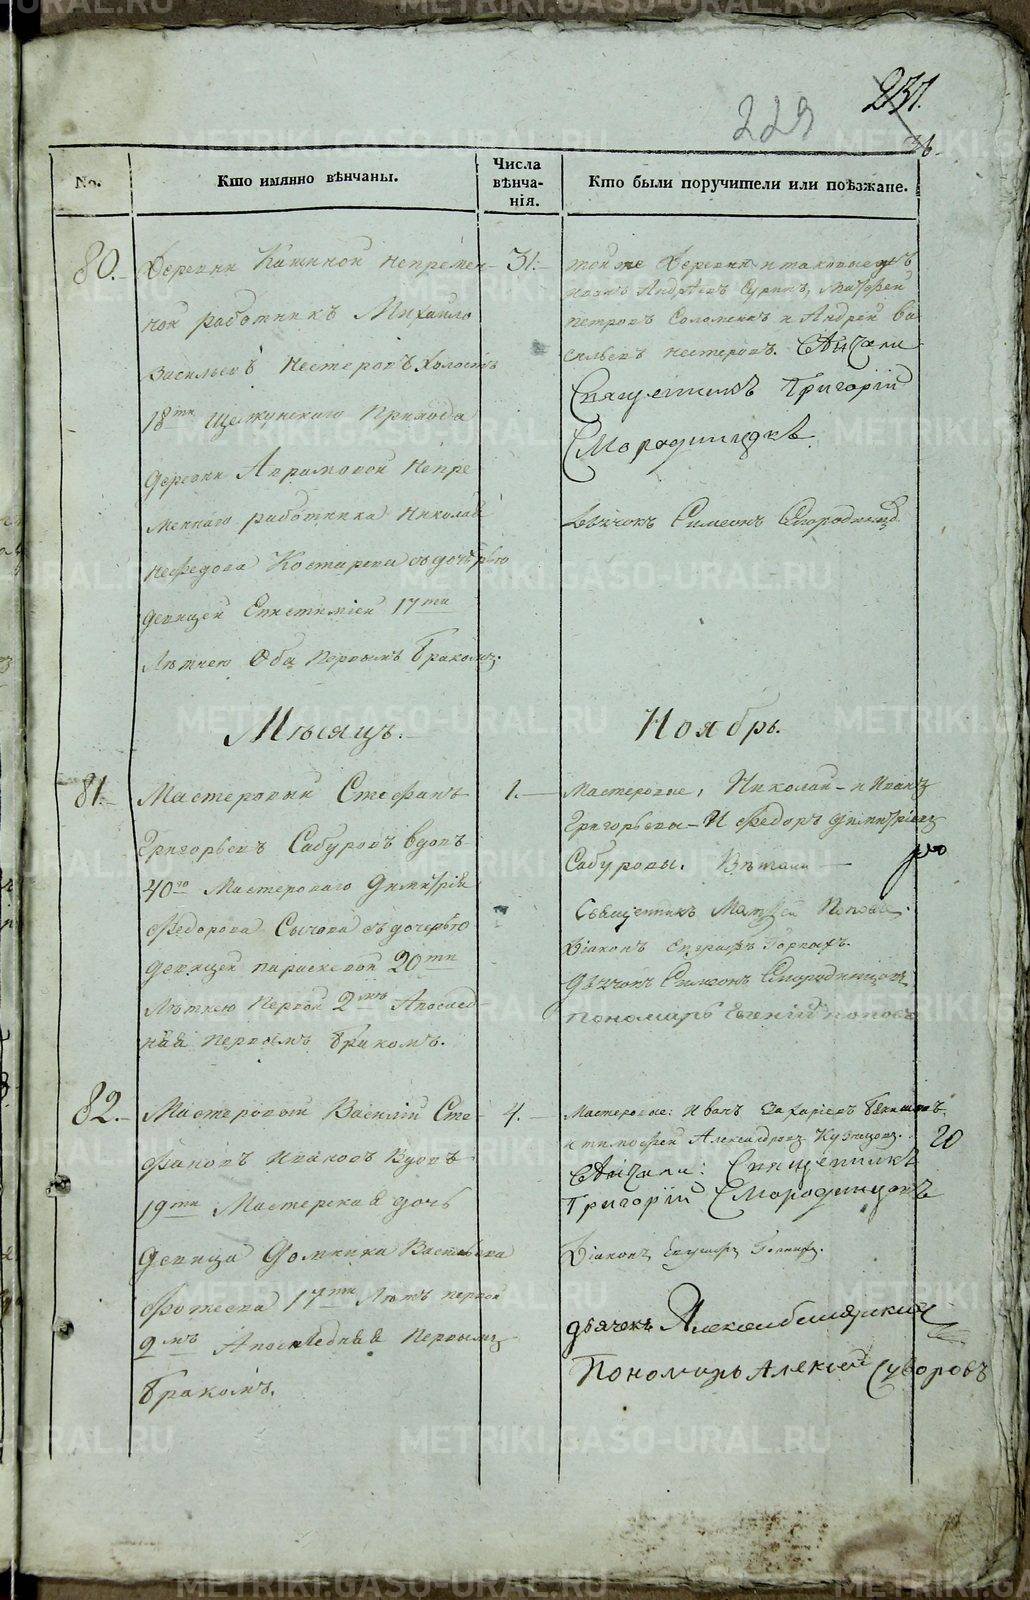 231.
229
36.
No.
Кто имянно вѣнчаны.
Числа
вѣнча-
нія.
Кто были поручители или поѣзжане.
80.
Деревни Кашиной непремен-
ной работникъ Михайло
Васильевъ Нестеровъ холостъ
18ти Щелкунскаго Прихода
деревни Аврамовой Непре
меннаго работника Николая
Нефедова Костарева съ дочерью
девицей Епистиміей 17ти
Лѣтнею Оба Первымъ бракомъ.
31.
той же Деревни
Иванъ Андреевъ Суринъ, Матфей
Петровъ Соломеинъ и Андрей Ва
сильевъ Нестеровъ. Венчали
Священникъ Григорій
Смородинцовъ
Дьячокъ Симеонъ Смородинцовъ
Мѣсяцъ.
Ноябрь.
81.
Мастеровый Стефанъ
Григорьевъ Сабуровъ вдовъ
40го Мастероваго Димитрія
Федорова Сычова съ дочерью
девицей Параскевой 20ти
Лѣтнею Первой 2мъ А последн
няя Первымъ бракомъ.
1.
Мастеровые, Николай и Иванъ
Григорьевы И Федоръ Димитріевъ
Сабуровы. Вѣнчали
Священникъ Матфей Поповъ.
Діаконъ Евграфъ Горныхъ.
Дьячокъ Симеонъ Смородинцовъ
Пономарь Евгеній Поповъ
82.
Мастеровой Василій Сте-
фановъ Вдовъ
19ти Мастерская дочь
девица Домника Васильева
Фотеева 17ти Лѣтъ первой
2мъ А последняя Первымъ
бракомъ.
4.
Мастеровые: Иванъ Захаровъ
и Тимофей Александровъ Кузнецовъ.
20
Венчали: Священникъ
Григорій Смородинцовъ
Діаконъ Евграфъ Горныхъ.
дьячекъ
Пономарь Алексій Суворовъ
METRIKI.GASO-URAL.RU